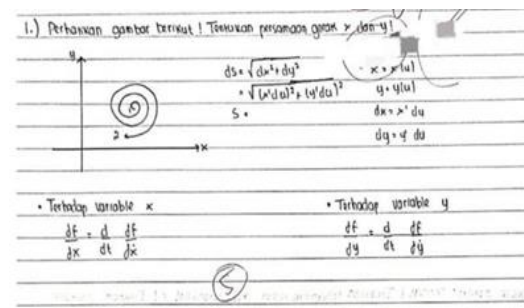 1.) Perhatikan gambar berikut ! Tentukan persamaan gerak x dan y!
y
x
2
x
ds = √dx²+dy²
= √(x'du)²+(y'du)²
S =
x = x(u)
y = y(u)
dx = x' du
dy = y' du
• Terhadap variable x
df/dx = d/dt df/dẋ
• Terhadap variable y
df/dy = d/dt df/dẏ
5